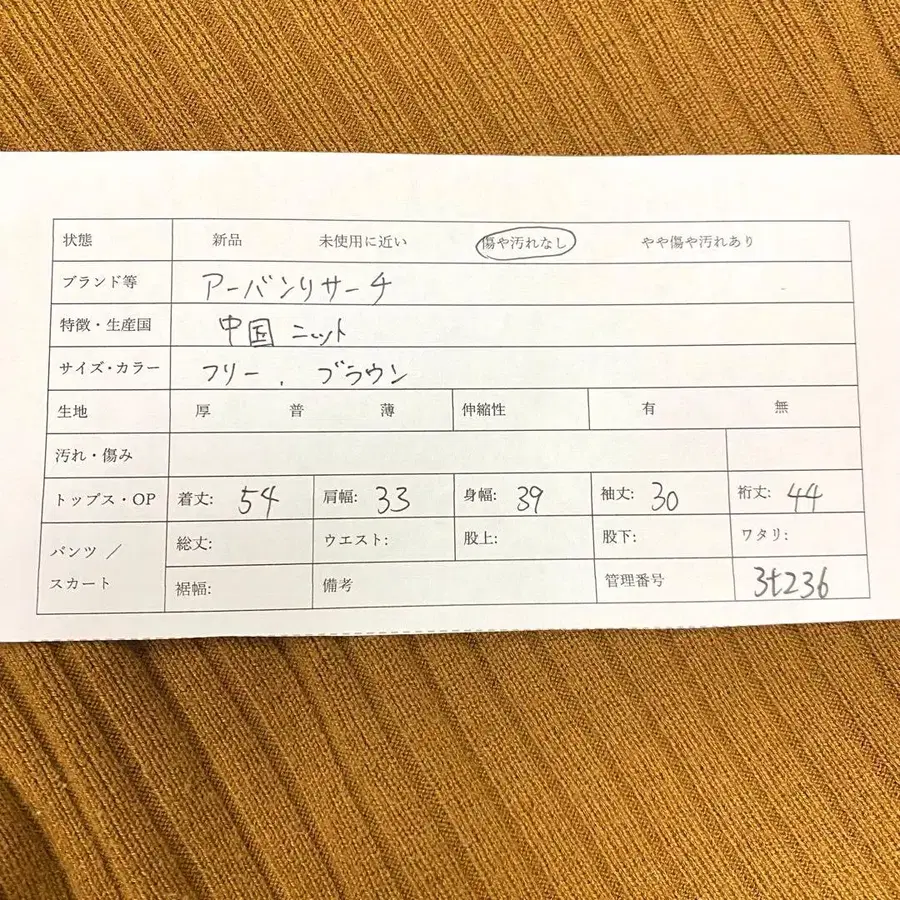 状態 新品 未使用に近い 傷や汚れなし やや傷や汚れあり
ブランド等 アーバンリサーチ
特徴・生産国 中国 ニット
サイズ・カラー フリー . ブラウン
生地 厚 普 薄 伸縮性 有 無
汚れ・傷み
トップス・OP 着丈: 54 肩幅: 33 身幅: 39 袖丈: 30 裄丈: 44
パンツ / スカート 総丈: ウエスト: 股上: 股下: ワタリ:
裾幅: 備考 管理番号 3t236